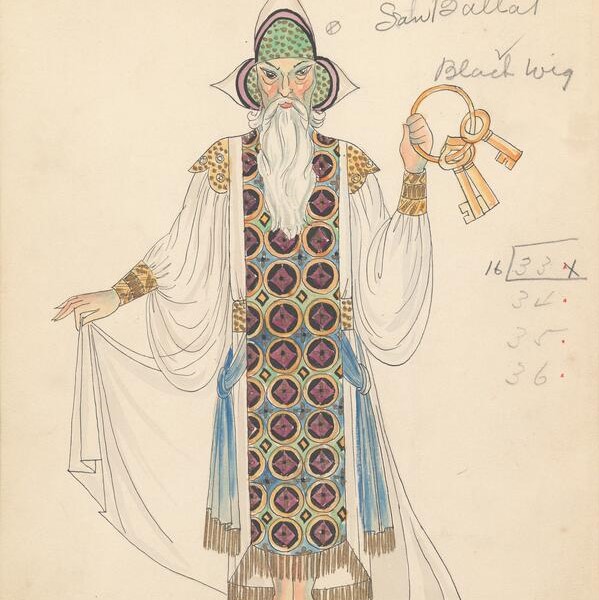 San Ballat
Black Wig
16 33 x
34.
35.
36.